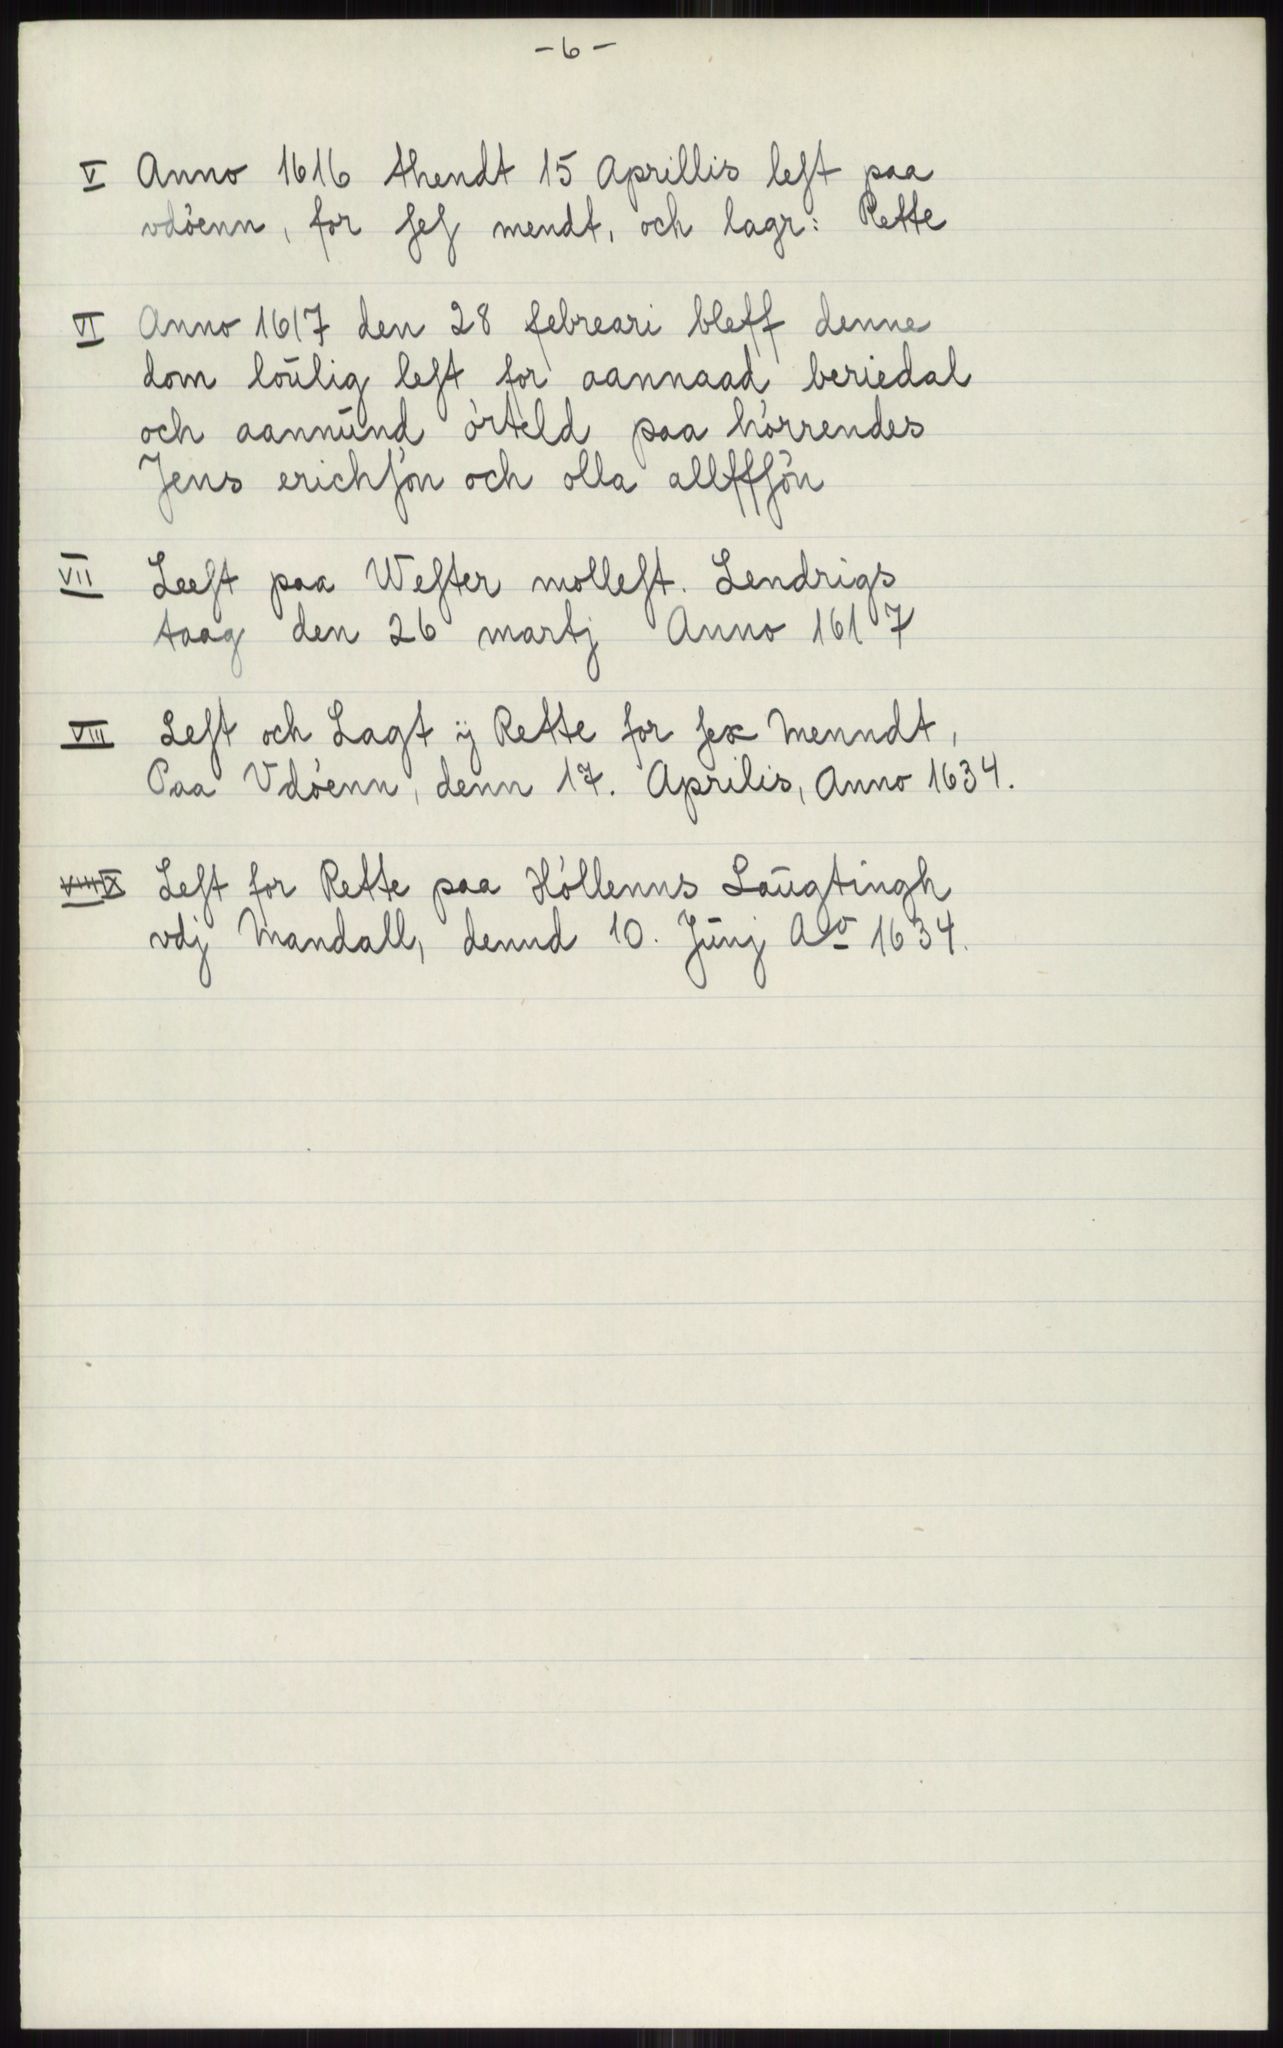 - 6 -
V Anno 1616 thendt 15 Aprillis leſt paa
vdöenn, for ſeſ mendt, och lagr: Rette
VI Anno 1617 den 28 febreari bleff denne
dom loŭlig leſt for aannaad beriedal
och aannŭnd örteld paa hörrendes
Jens erichſön och olla allffſön
VII Leeſt paa Weſter molleſt. Lendrigs
taag den 26 martj Anno 1617
VIII Leſt och Lagt ÿ Rette for ſex Menndt,
Paa Vdöenn, denn 17. Aprilis, Anno 1634.
IX Leſt for Rette paa Höllenns Laŭgtingh
vdj Mandall, dennd 10. Jŭnj Aº 1634.